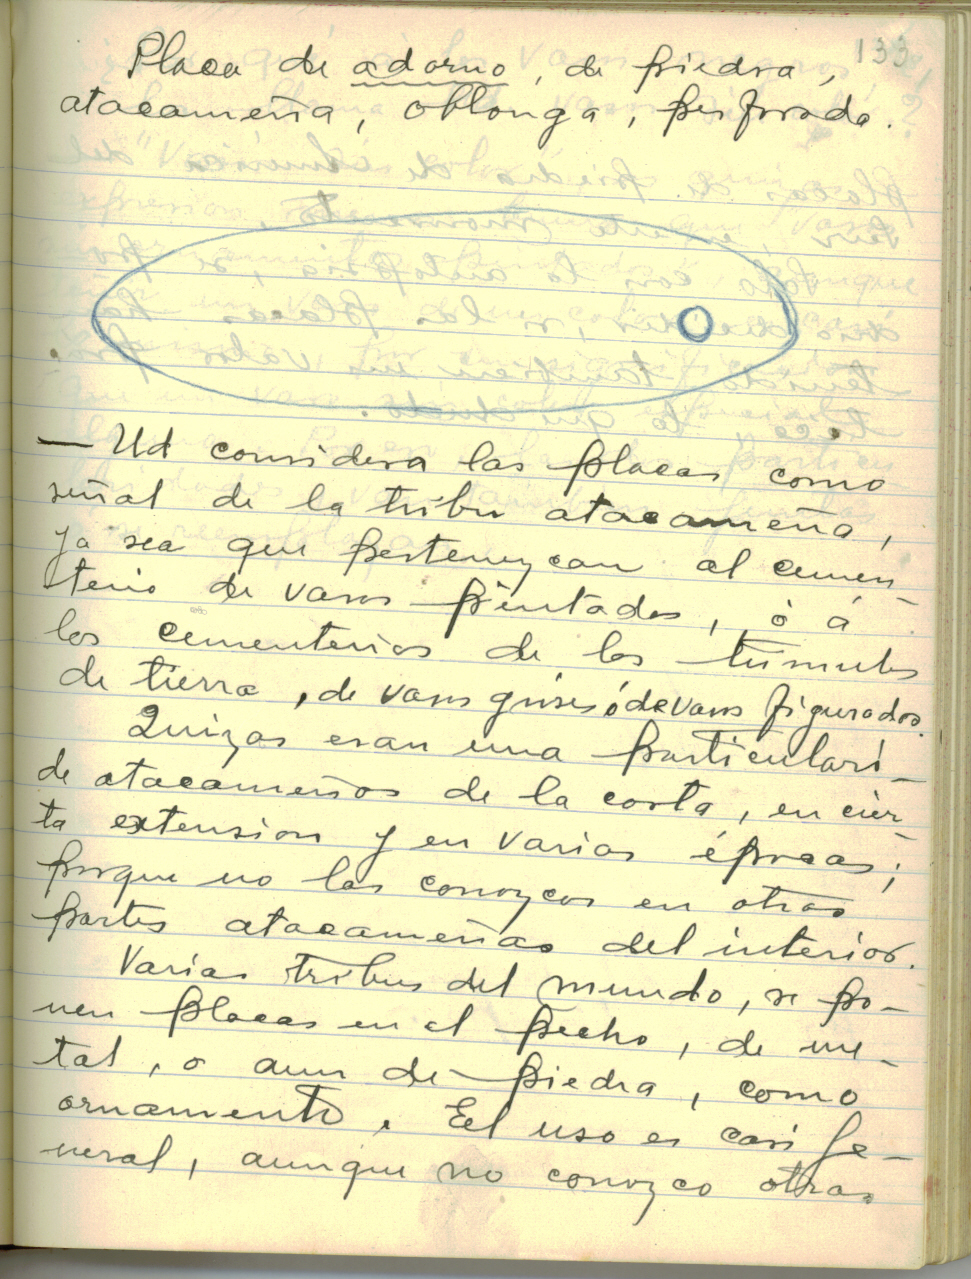 133
Placa de adorno, de piedra,
atacameña, oblonga, perforada.
— Ud considera las placas como
señal de la tribu atacameña,
ya sea que pertenezcan al cemen-
terio de vasos pintados, ò á
los cementerios de los túmulos
de tierra, de vasos grises ó de vasos figurados.
Quizas eran una particulari-
de atacameños de la costa, en cier-
ta extension y en varias épocas;
porque no las conozcos en otras
partes atacameñas del interior.
Varias tribus del mundo, se po-
nen placas en el pecho, de me-
tal, o aun de piedra, como
ornamento. El uso es casi ge-
neral, aunque no conozco otras